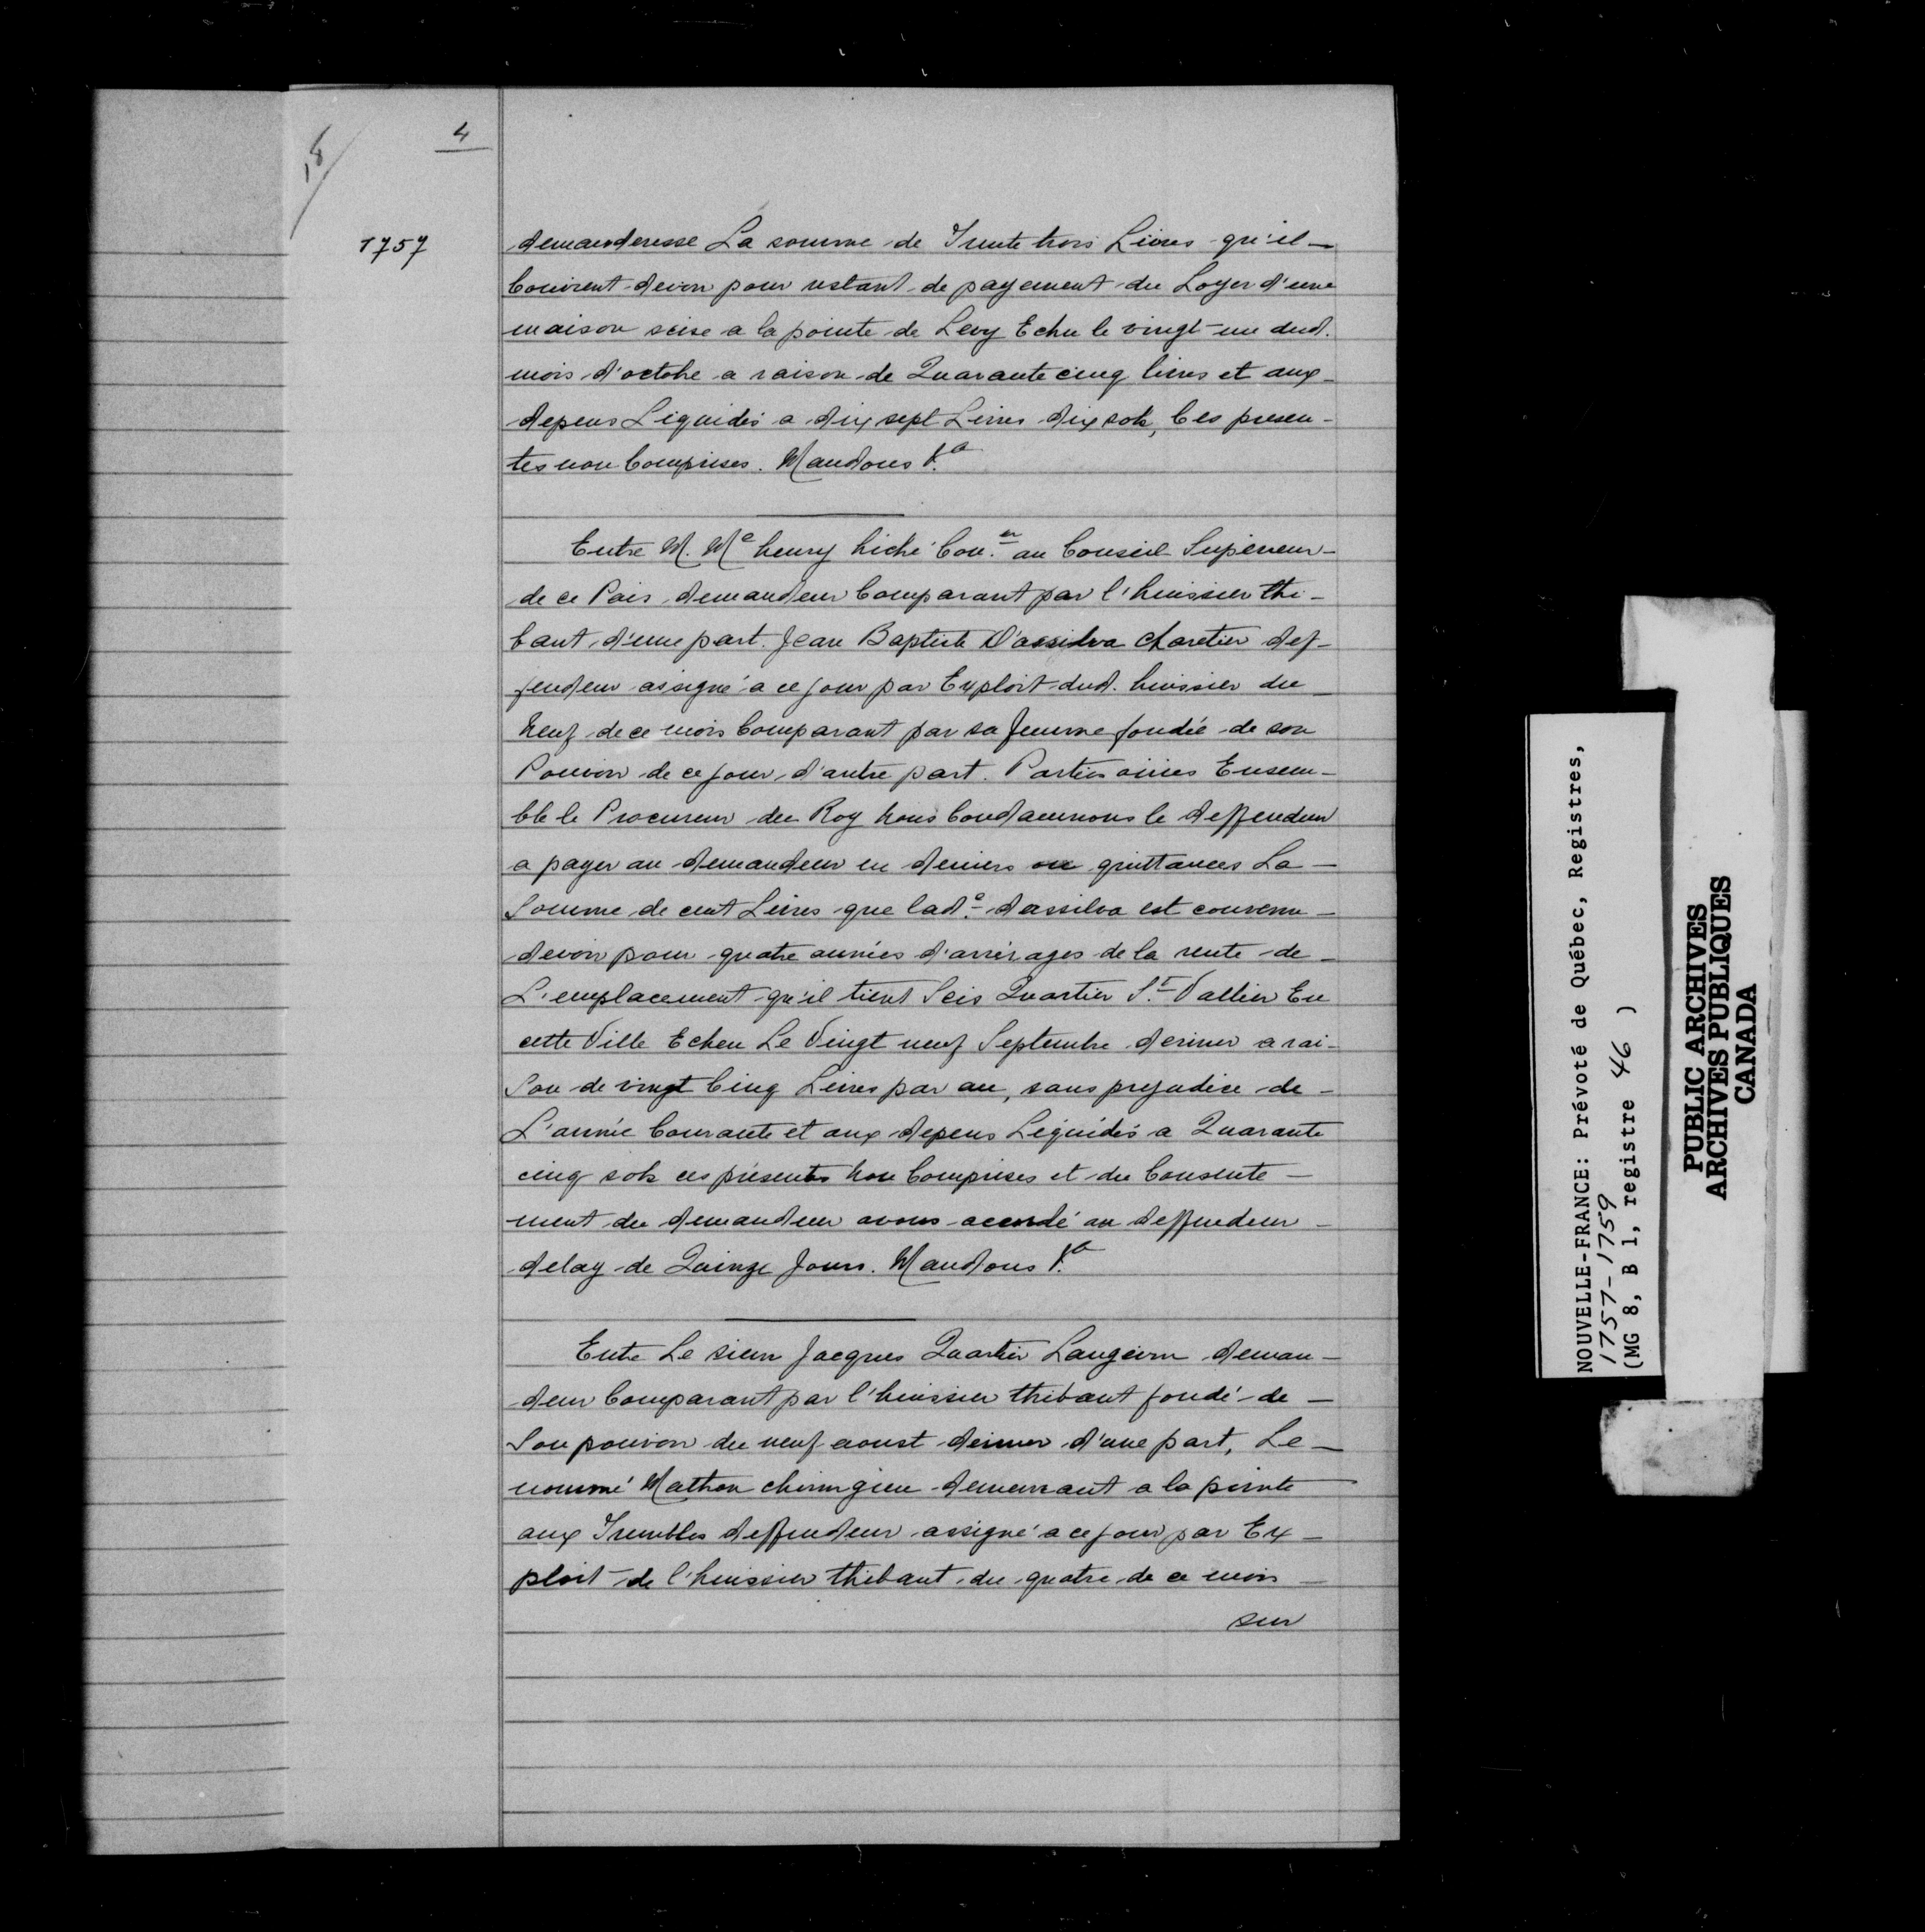 18
4
1757
demanderesse La somme de Trente trois Livres qu'il
Convient devoir pour restant de payement du Loyer d'une
maison scise a la pointe de Levy Echu le vingt-un dud.
mois d'octobre a raison de Quarante cinq livres et aux
depens Liquidés a dix sept Livres dix sols, Ces presen-
tes non Comprises. Mandons &.a
Entre M. Me henry hiché Con.er au Conseil Superieur
de ce Pais demandeur Comparant par l'huissier thi-
baut d'une part. Jean Baptiste D'assilva charetier def-
fendeur assigné a ce jour par Exploit dud. huissier du
Neuf de ce mois Comparant par sa femme fondée de son
Pouvoir de ce jour d'autre part. Parties oüies Ensem-
ble le Procureur du Roy Nous Condamnons le deffendeur
a payer au demandeur en deniers ou quittances La
Somme de cent Livres que lad.e dassilva est convenu
devoir pour quatre années d'arrérages de la rente de
L'emplacement qu'il tient Scis Quartier S.t Vallier En
cette Ville Echeu Le Vingt neuf Septembre dernier a rai-
Son de vingt Cinq Livres par an, sans prejudice de
L'année Courante et aux depens Liquidés a Quarante
cinq sols ces présentes Non Comprises et du Consente-
ment du demandeur avons accordé au deffendeur
delay de Quinze Jours. Mandons &.a
Entre Le sieur Jacques Quartier Langevin deman-
deur Comparant par l'huissier thibaut fondé de
Son pouvoir du neuf aoust dernier d'une part, Le
nommé Mathon chirurgien demeurant a la pointe
aux Trembles deffendeur assigné a ce jour par Ex-
ploit de l'huissier thibaut du quatre de ce mois
sur
NOUVELLE-FRANCE: Prévoté de Québec, Registres,
1757-1759
(MG 8, B 1, registre 46 )
PUBLIC ARCHIVES
ARCHIVES PUBLIQUES
CANADA